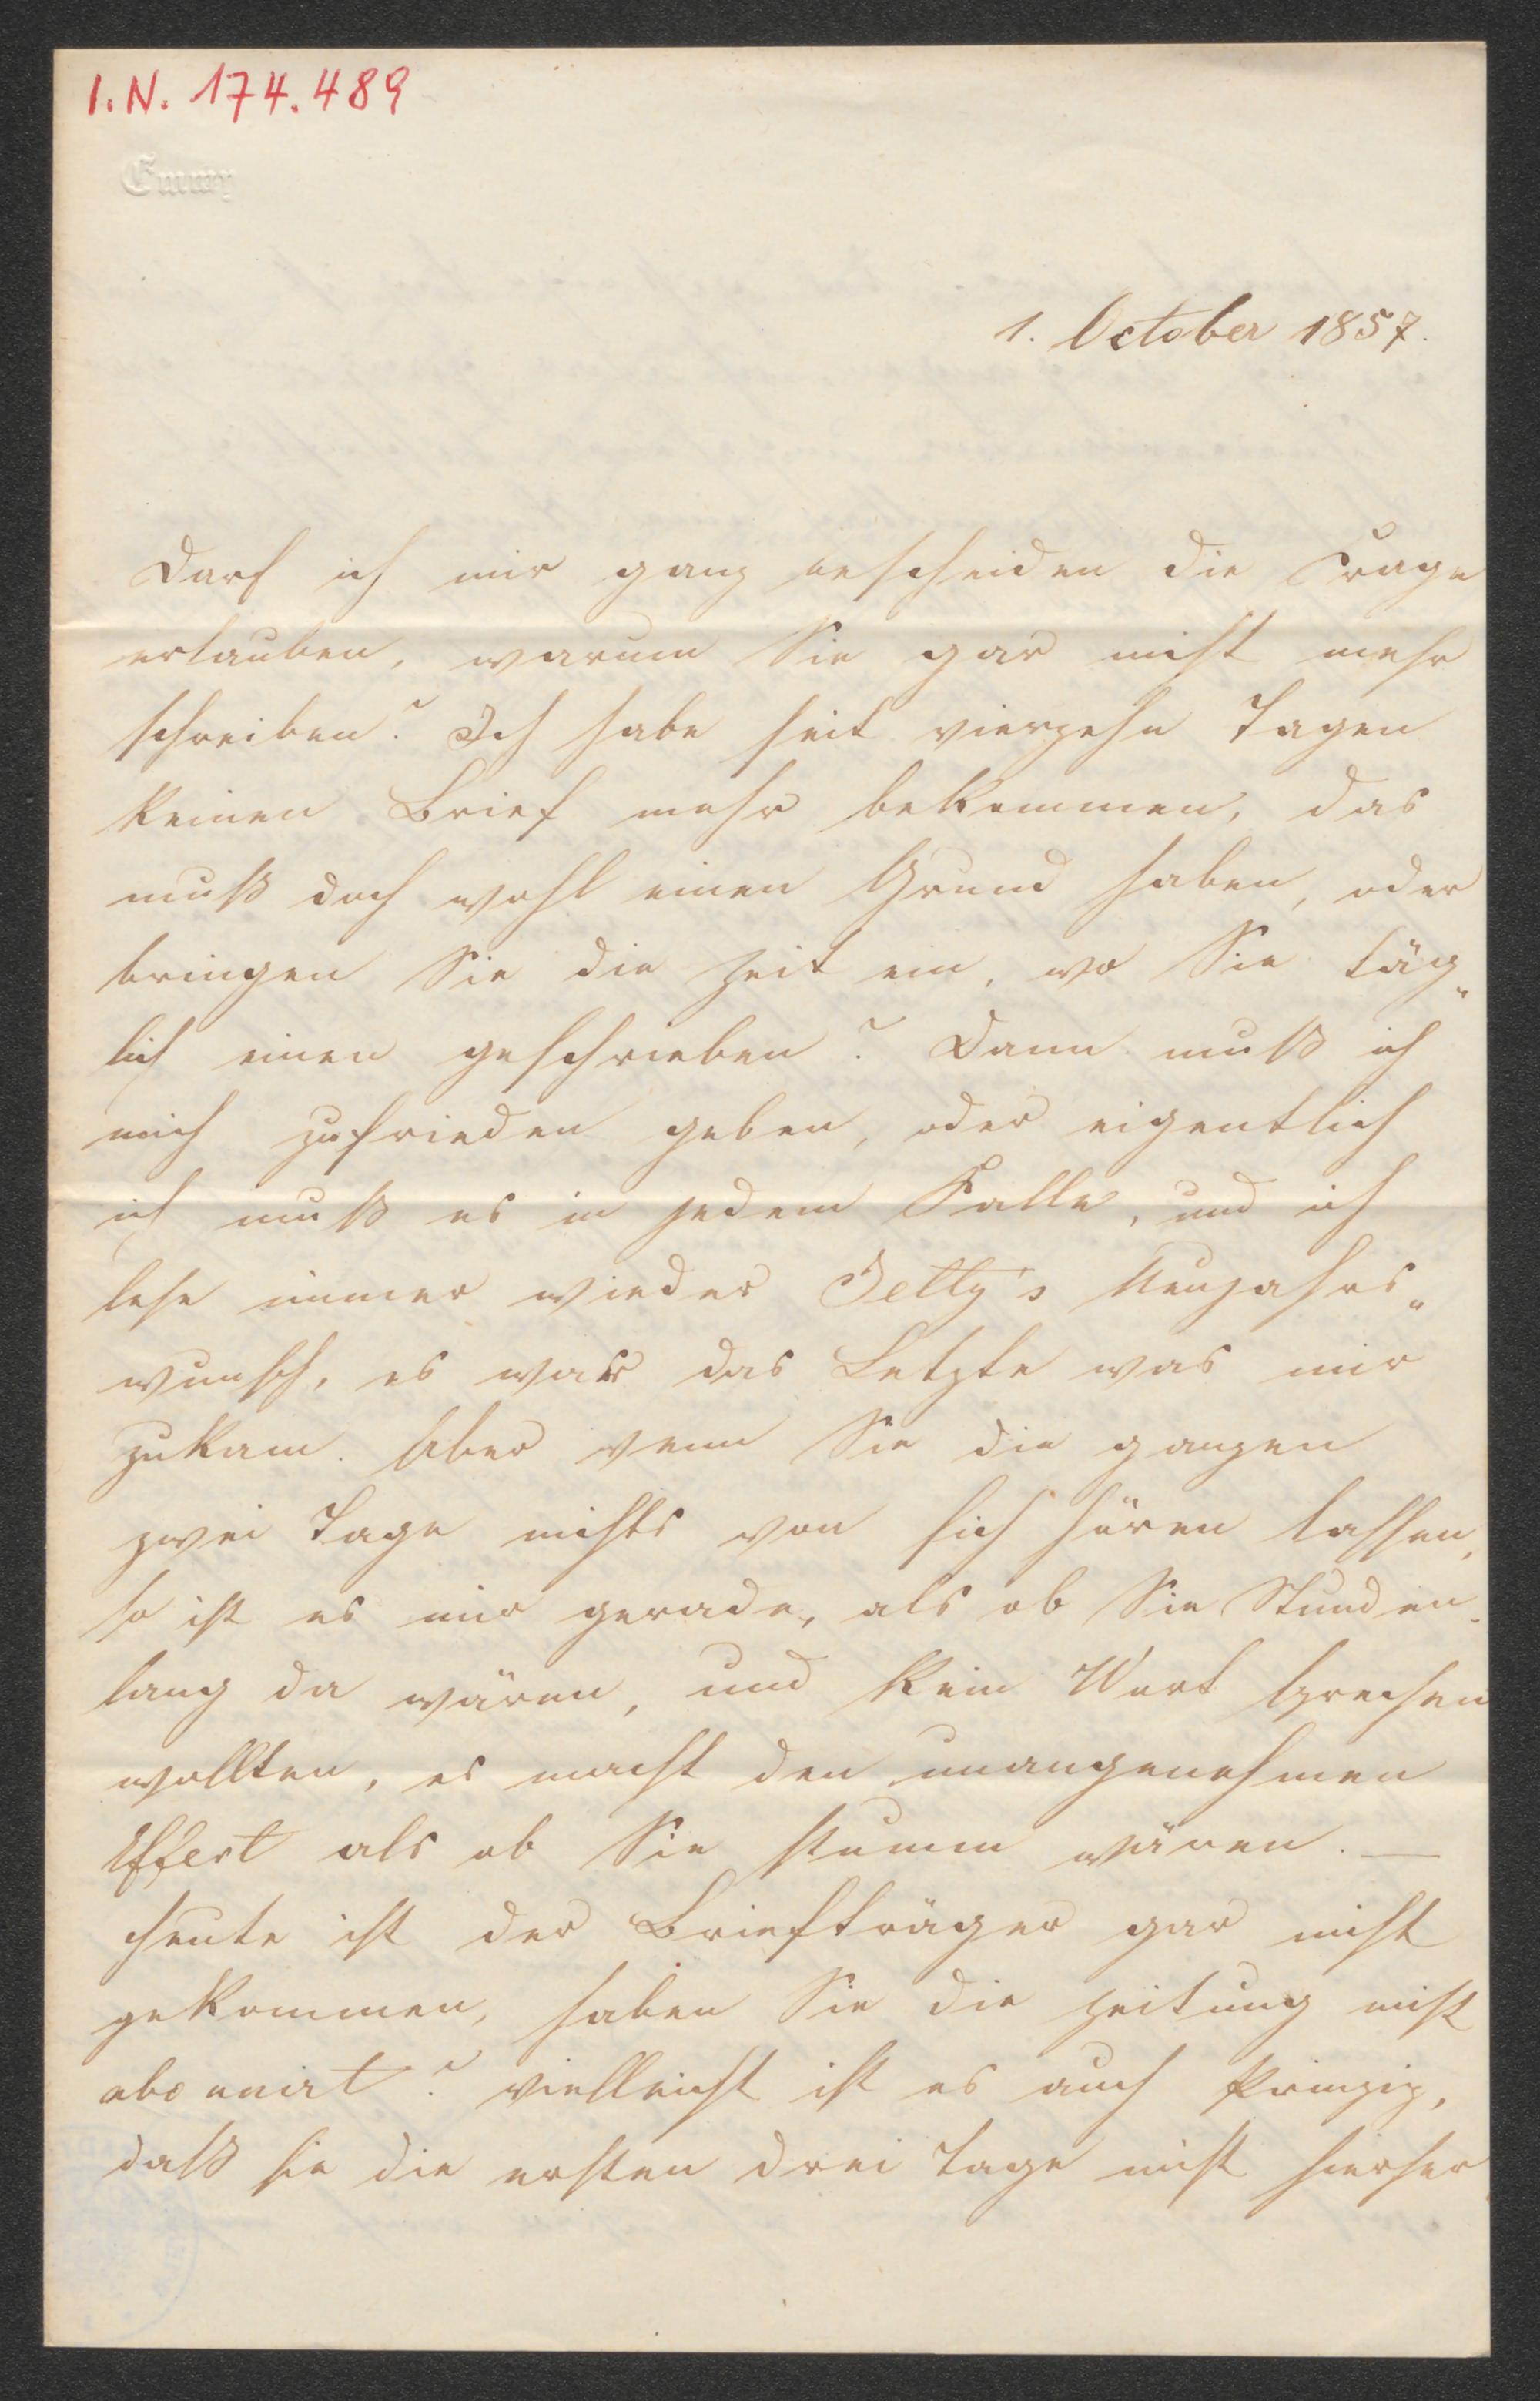 I.N. 174.489
Emmy
1. October 1857.
Darf ich mir ganz bescheiden die Frage
erlauben, warum Sie gar nicht mehr
schreiben? Ich habe seit vierzehn Tagen
keinen Brief mehr bekommen, das
muß doch wohl einen Grund haben, oder
bringen Sie die Zeit ein, wo Sie täg„
lich einen geschrieben? Dann muß ich
mich zufrieden geben, oder eigentlich
ich muß es in jedem Falle, und ich
lese immer wieder Jetty's Neujahrs„
wunsch, es war das Letzte was mir
zukam. Aber wenn Sie die ganzen
zwei Tage nichts von sich hören lassen,
so ist es mir gerade, als ob Sie Stunden„
lang da wären, und kein Wort sprechen
wollten, es macht den unangenehmen
Effect als ob Sie stumm wären. —
Heute ist der Briefträger gar nicht
gekommen, haben Sie die Zeitung nicht
abonnirt? vielleicht ist es auch Prinzip,
daß sie die ersten drei Tage nicht hierher